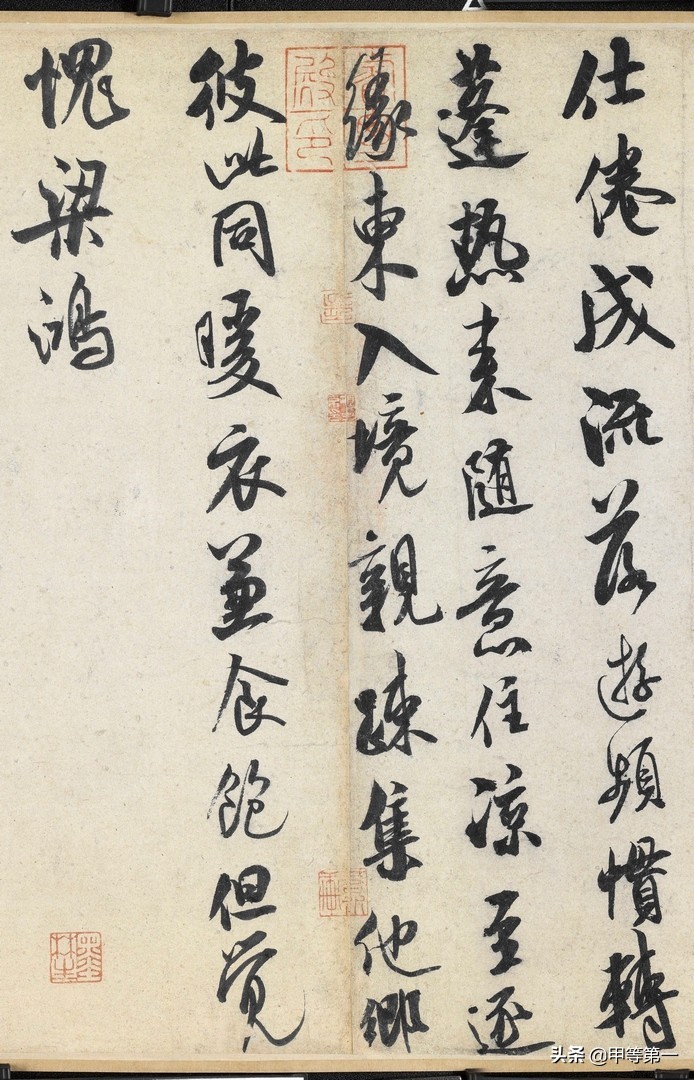 仕倦成流落遊頻慣轉
蓬熱來隨意住涼至逐
緣東入境親疎集他鄉
彼此同暖衣兼食飽但覺
愧梁鴻
头条 @甲等第一